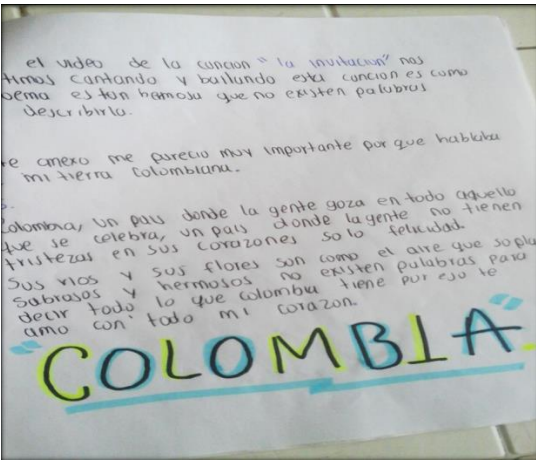 el video de la cancion "la invitacion" nos
timos cantando y bailando esta cancion es como
oema es tan hermosa que no existen palabras
describirla.
te anexo me parecio muy importante por que hablaba
mi tierra colombiana.
s.
Colombia, un pais donde la gente goza en todo aquello
que se celebra, un pais donde la gente no tienen
tristezas en sus corazones solo felicidad.
Sus rios y sus flores son como el aire que sopla
sabrosos y hermosos no existen palabras para
decir todo lo que colombia tiene por eso te
amo con todo mi corazon.
"COLOMBIA"